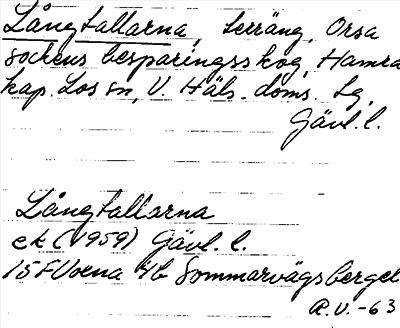 Långtallarna, terräng, Orsa
sockens besparingsskog, Hamra
kap. Los sn, V. Häls. doms. Lg,
Gävl. l.
Långtallarna
ek (1959) Gävl. l.
15F Voxna 4b Sommarvägsberget
R.V. -63